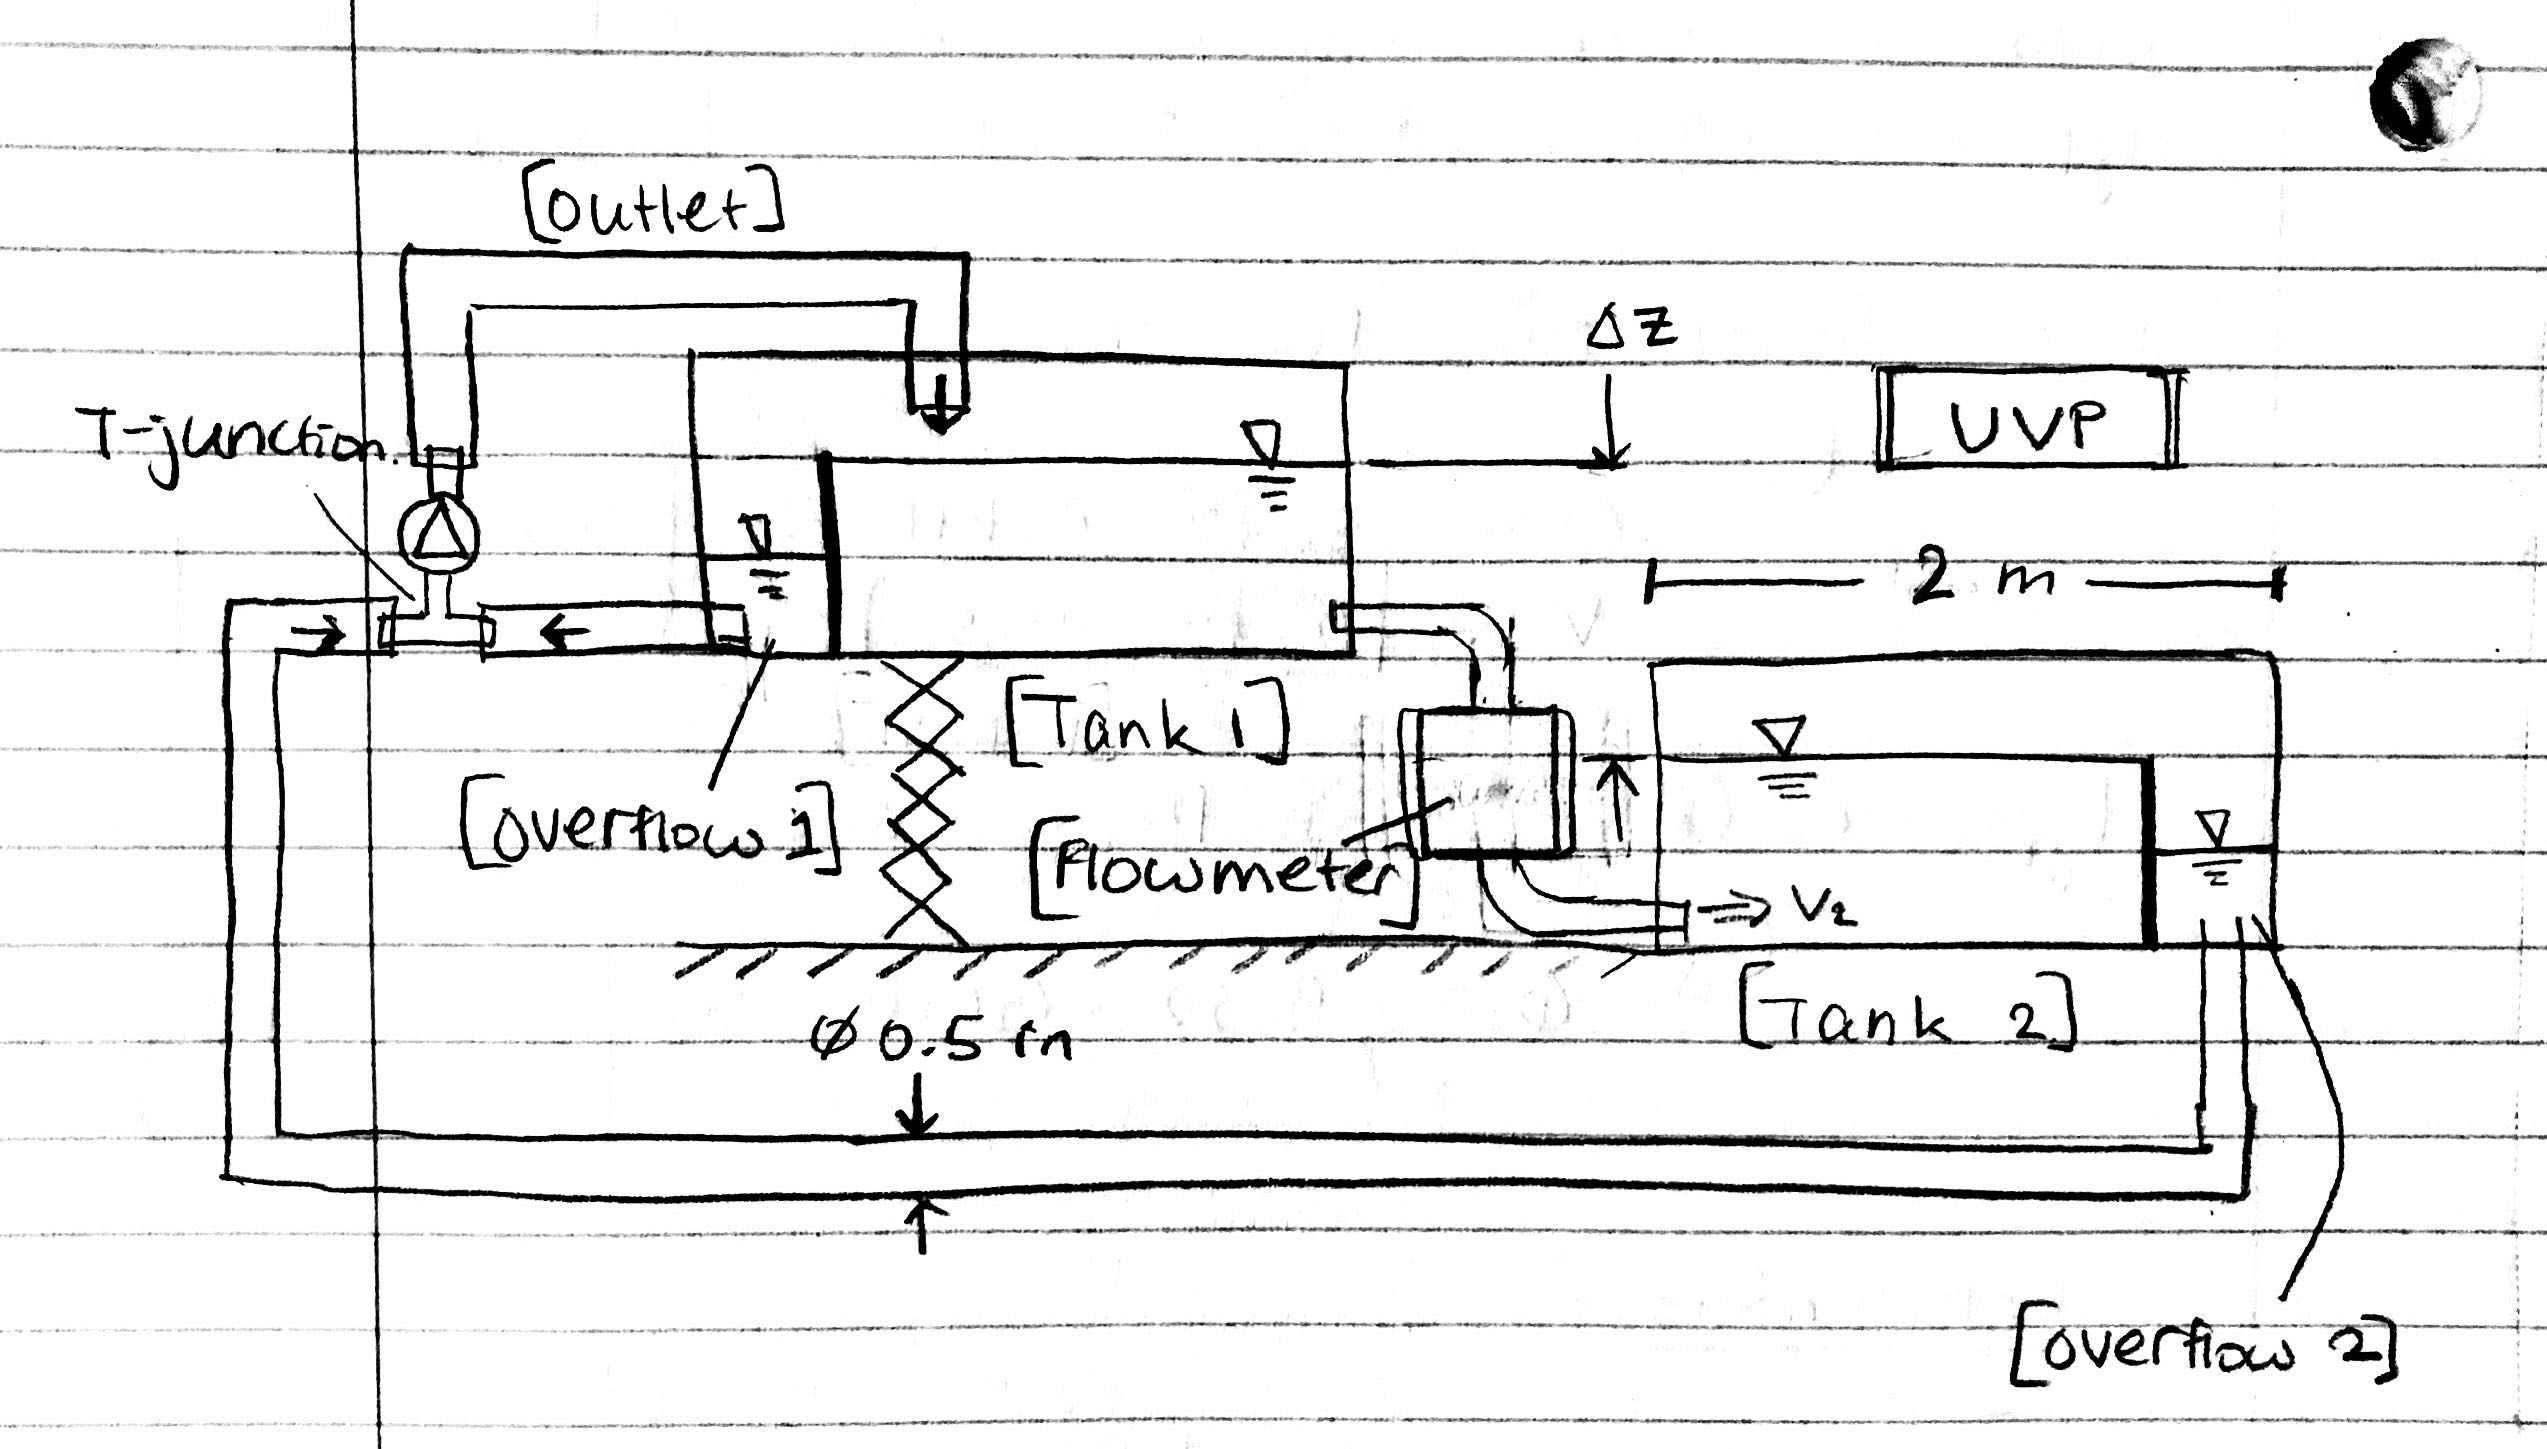 [outlet]
ΔZ
T-junction.
UVP
2 m
[Tank 1]
[overflow 1]
[Flowmeter]
V2
[Tank 2]
Ø 0.5 in
[overflow 2]